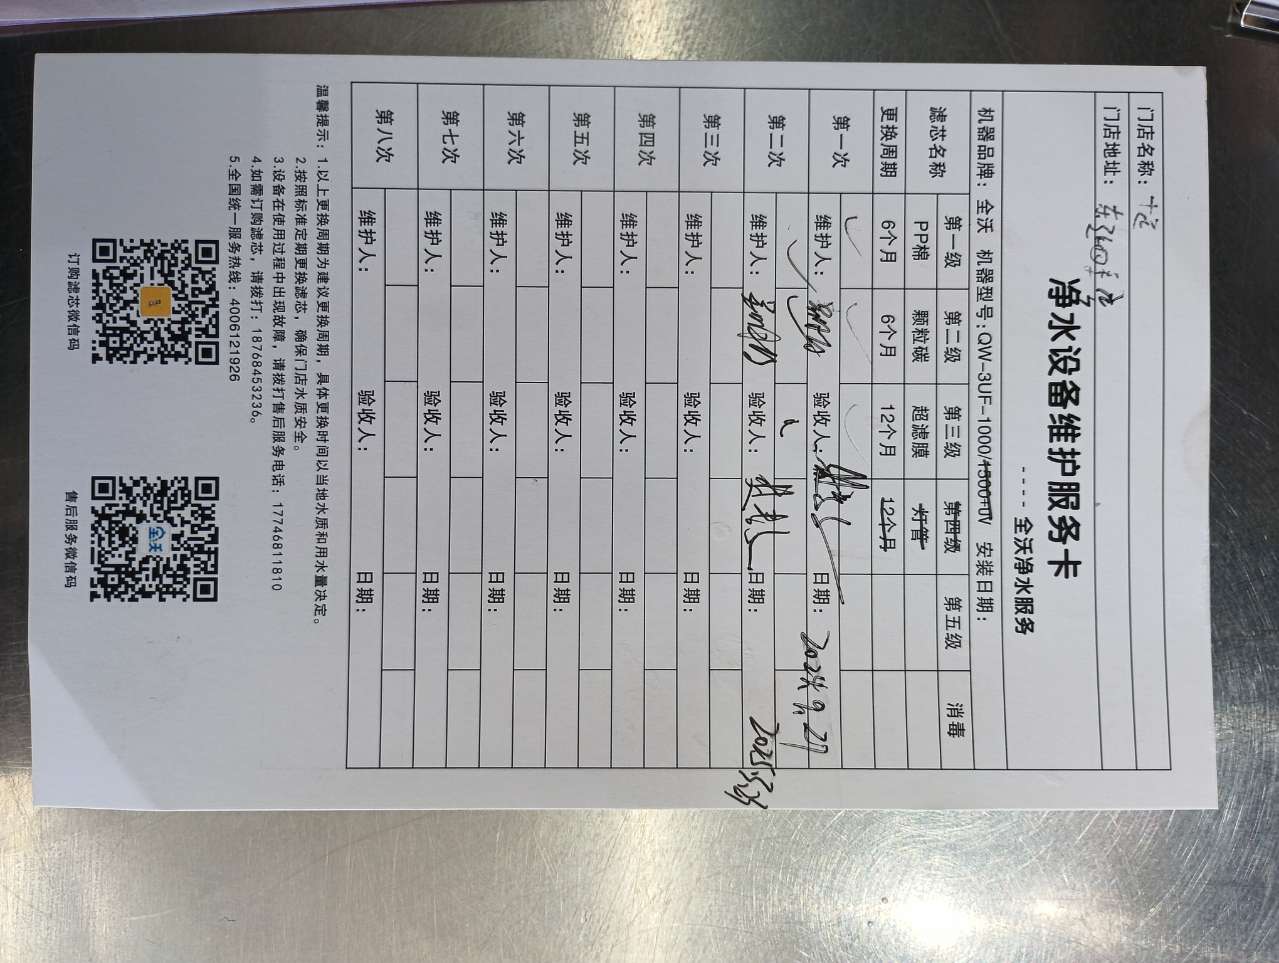 门店名称：
门店地址：
净水设备维护服务卡
---- 全沃净水服务
机器品牌：全沃 机器型号：QW-3UF-1000/1500+UV 安装日期：
滤芯名称 第一级 第二级 第三级 第四级 第五级 消毒
PP棉 颗粒碳 超滤膜 灯管
更换周期 6个月 6个月 12个月 12个月
第一次 ✓ ✓ ✓
维护人： 验收人： 日期：2024.9.27
第二次 ✓ ✓ ✓
维护人： 验收人： 日期：
第三次
维护人： 验收人： 日期：
第四次
维护人： 验收人： 日期：
第五次
维护人： 验收人： 日期：
第六次
维护人： 验收人： 日期：
第七次
维护人： 验收人： 日期：
第八次
维护人： 验收人： 日期：
温馨提示：1.以上更换周期为建议更换周期，具体更换时间以当地水质和用水量决定。
2.按照标准定期更换滤芯，确保门店水质安全。
3.设备在使用过程中出现故障，请拨打售后服务电话：17746811810
4.如需订购滤芯，请拨打：18768453236。
5.全国统一服务热线：4006121926
订购滤芯微信码
全沃
售后服务微信码